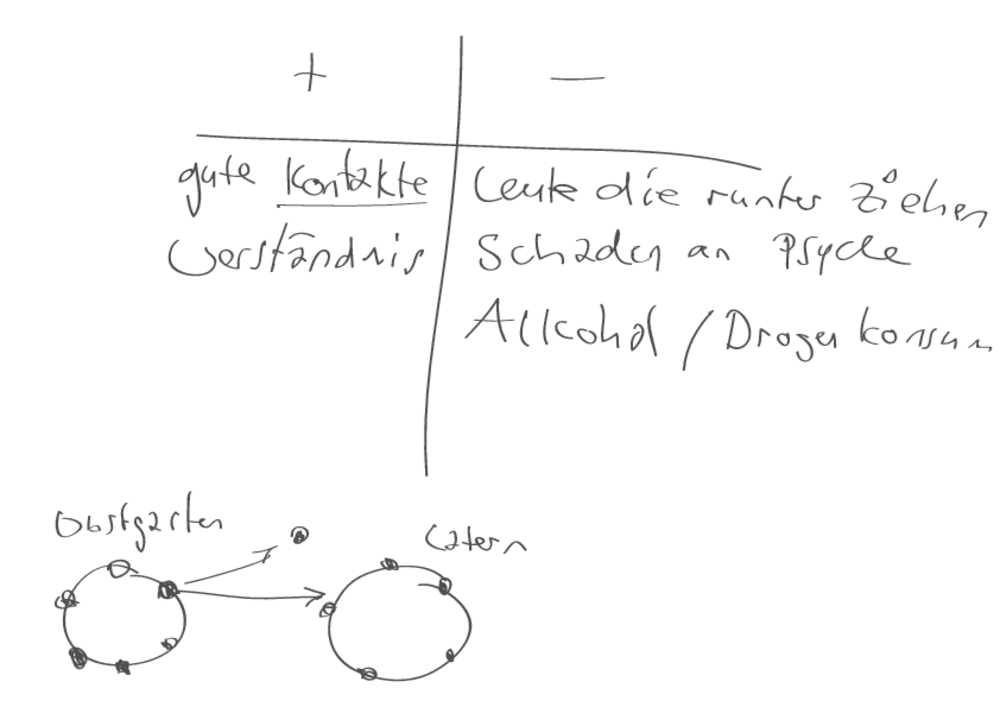 + —
gute Kontakte Leute die runter ziehen
Verständnis Schaden an Psyche
Allkohol / Drogen konsum
Obstgarten
Latern